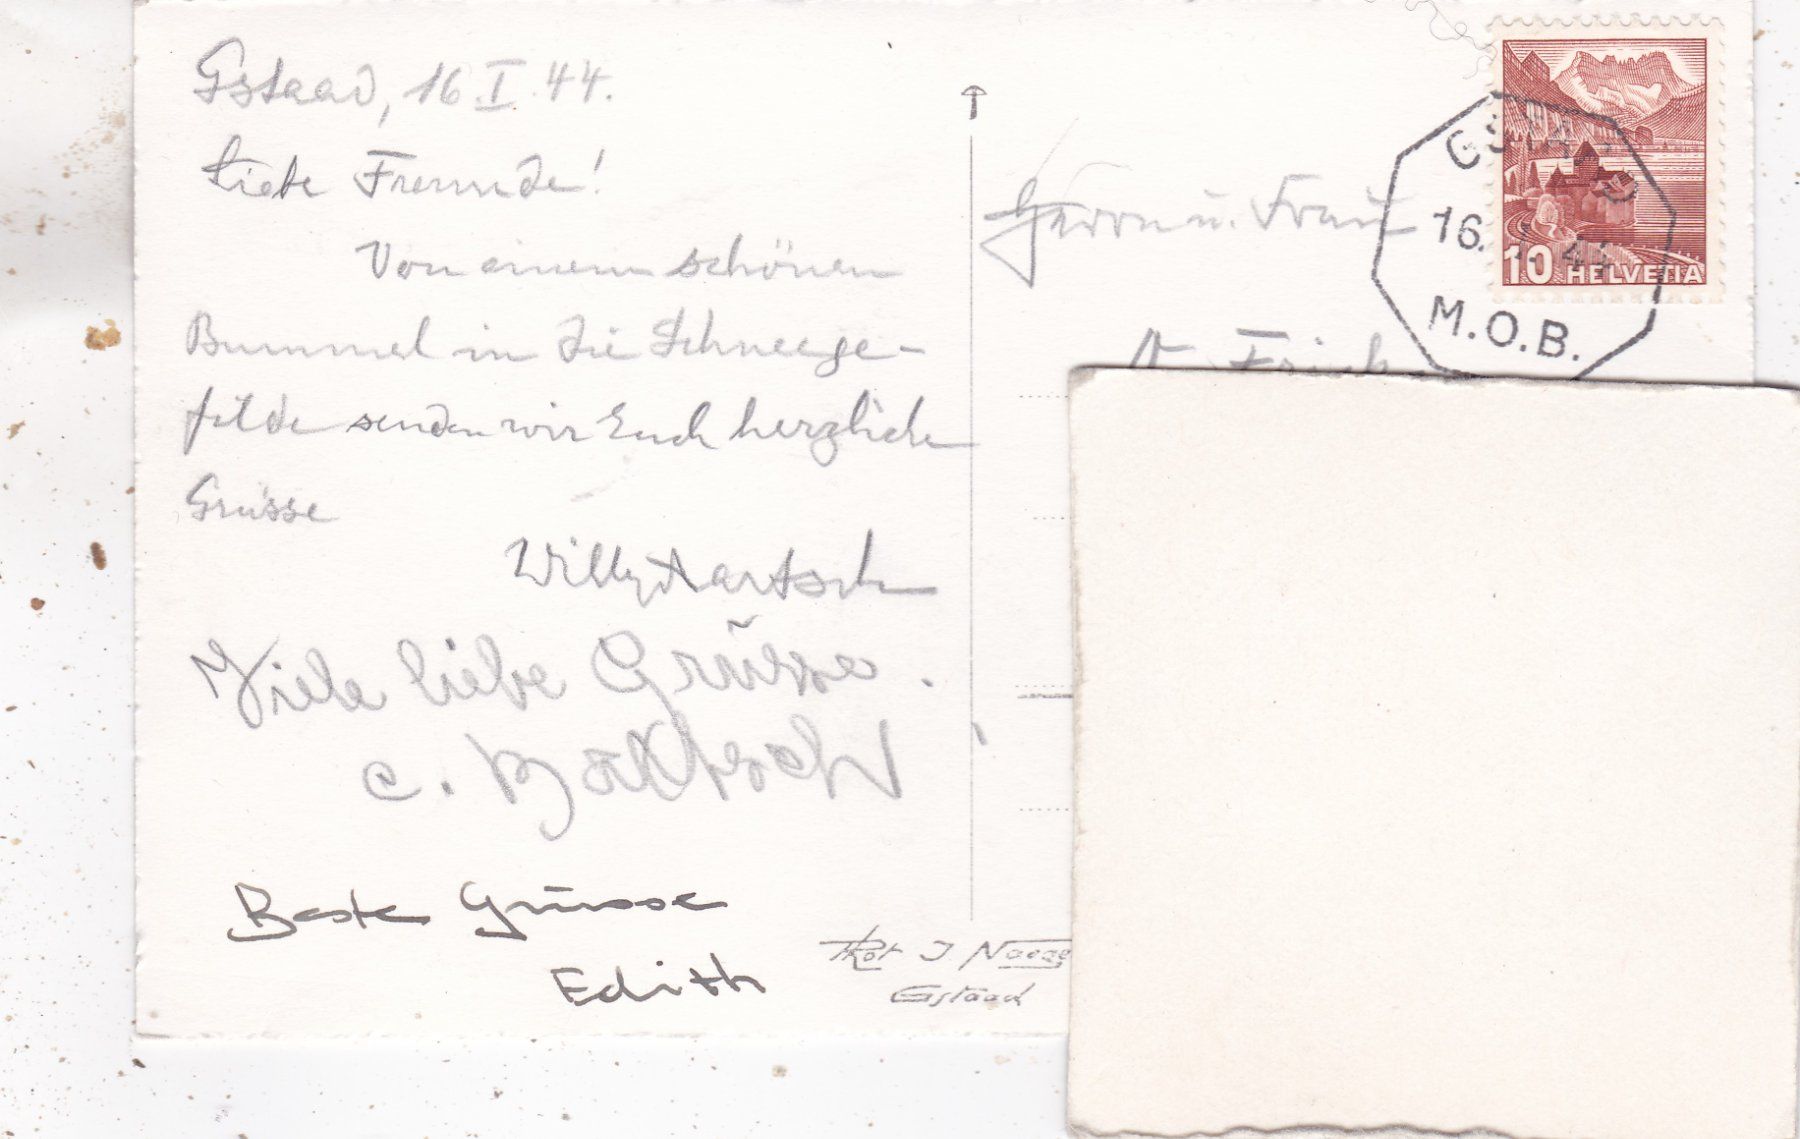 Gstaad, 16.I.44.
Liebe Freunde!
Von einem schönen
Bummel in die Schneege-
filde senden wir Euch herzliche
Grüsse
Willy
Viele liebe Grüsse.
Beste Grüsse
Edith
Phot J Naege
Gstaad
Herrn u. Frau
GSTAAD
16. I. 44
M.O.B.
10 HELVETIA